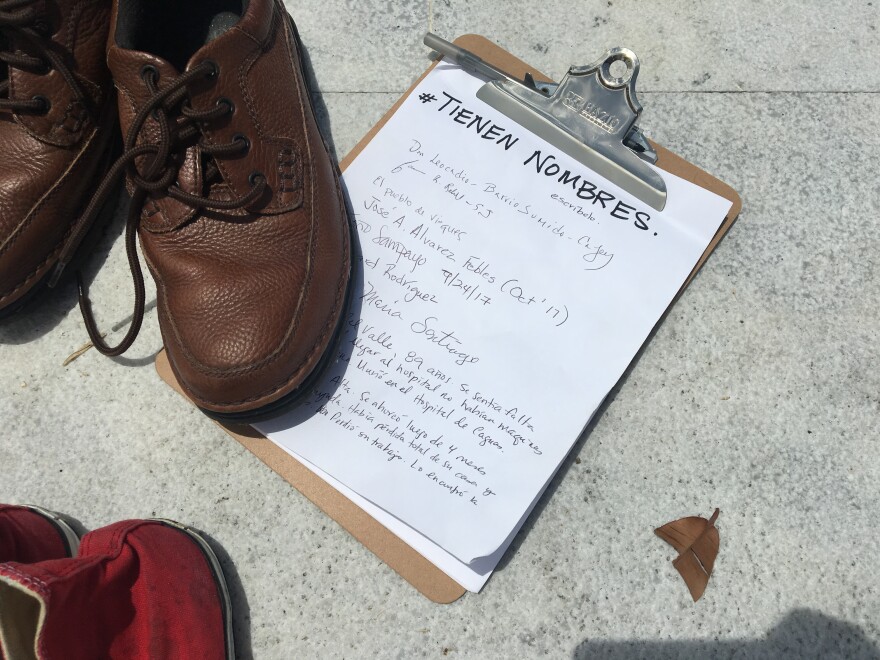 #TIENEN NOMBRES.
escríbelo.
Don Leocadio - Barrio Sumido - Cayey
El pueblo de Vieques
José A. Alvarez Febles (Oct '17)
Sampayo 9/24/17
Rodríguez
María Santiago
Valle 89 anos. Se sentía falla
llegar al hospital no habían maquinas
Murió en el Hospital de Caguas.
Alta. Se ahorcó luego de 4 meses
Había perdida total de su casa y
Perdió su trabajo. Lo encontró la